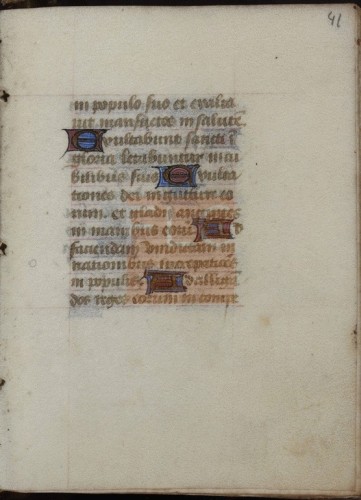 41
in populo suo et exalta
uit mansuetos in salutē
Exultabunt sancti ī
gloria letabuntur in cu
bilibus suis Exulta
tiones dei in gutture eo
rum. et gladij ancipites
in manibus eorū Ad
faciendam vindictam in
nationibus increpationes
in populis Ad alligan
dos reges eorum in compe